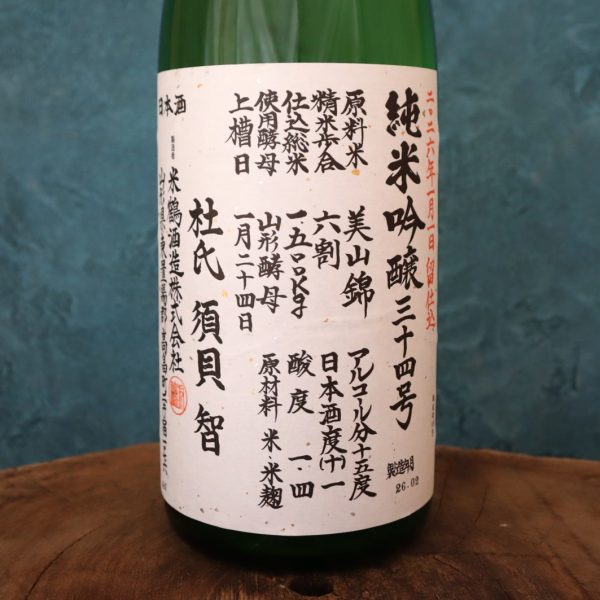 二〇二六年一月一日留仕込
純米吟醸三十四号
原料米 美山錦
精米歩合 六割
仕込総米 一、五〇〇kg
使用酵母 山形酵母
上槽日 一月二十四日
アルコール分十五度
日本酒度(十)一
酸度 一・四
原材料 米 米麹
製造年月
26.02
杜氏 須貝 智
製造者
米鶴酒造株式会社
山形県東置賜郡高畠町
日本酒